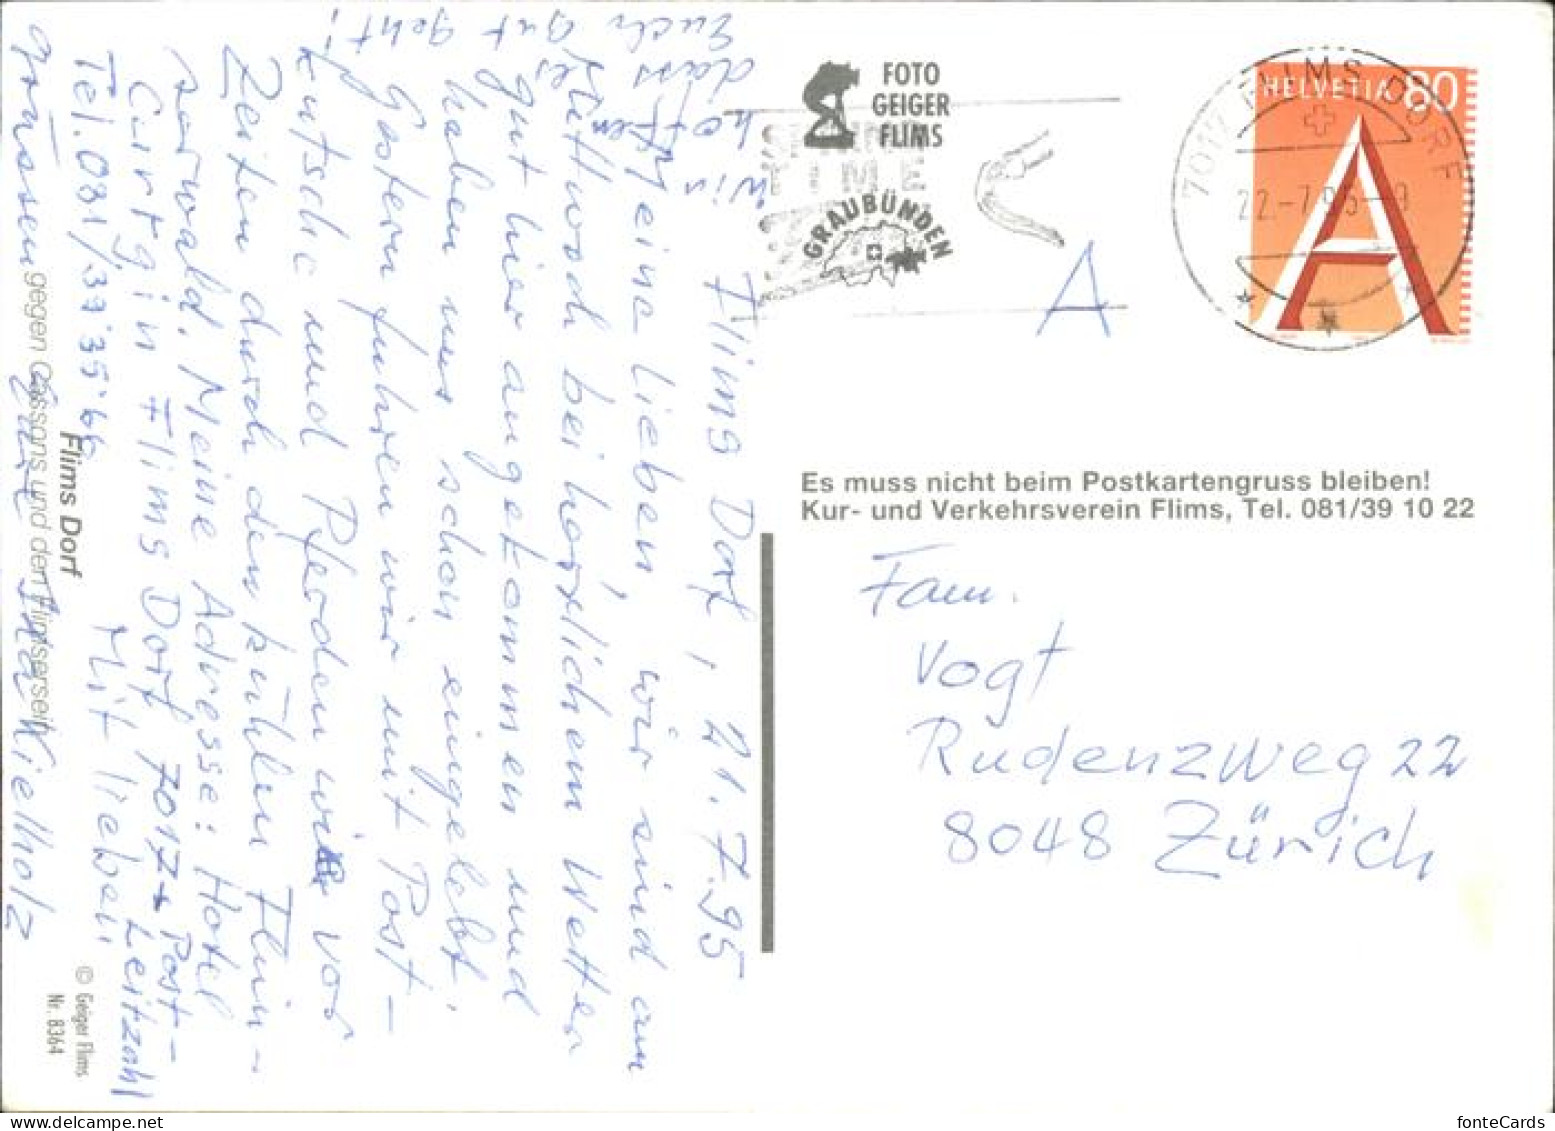 Flims Dorf, 21.7.95
Meine lieben, wir sind am
Mittwoch bei herrlichem Wetter
gut hier angekommen und
haben uns schon eingelebt.
Gestern fuhren wir mit Post-
kutsche und Pferden wie vor
Zeiten durch den kühlen Flim-
serwald. Meine Adresse: Hotel
Curtgin Flims Dorf 7017 Post-
Leitzahl
Tel. 081/39'35'66
Mit lieben
grüssen Eure Kielholz
Wir hoffen
dass es
Euch gut geht!
Flims Dorf
gegen Cassons und den Flimserstein
© Geiger Flims
Nr. 8364
FOTO
GEIGER
FLIMS
GRAUBÜNDEN
A
HELVETIA 80
A
7017 FLIMS DORF
22.-7.95-9
Es muss nicht beim Postkartengruss bleiben!
Kur- und Verkehrsverein Flims, Tel. 081/39 10 22
Fam.
Vogt
Rudenzweg 22
8048 Zürich
fonteCards